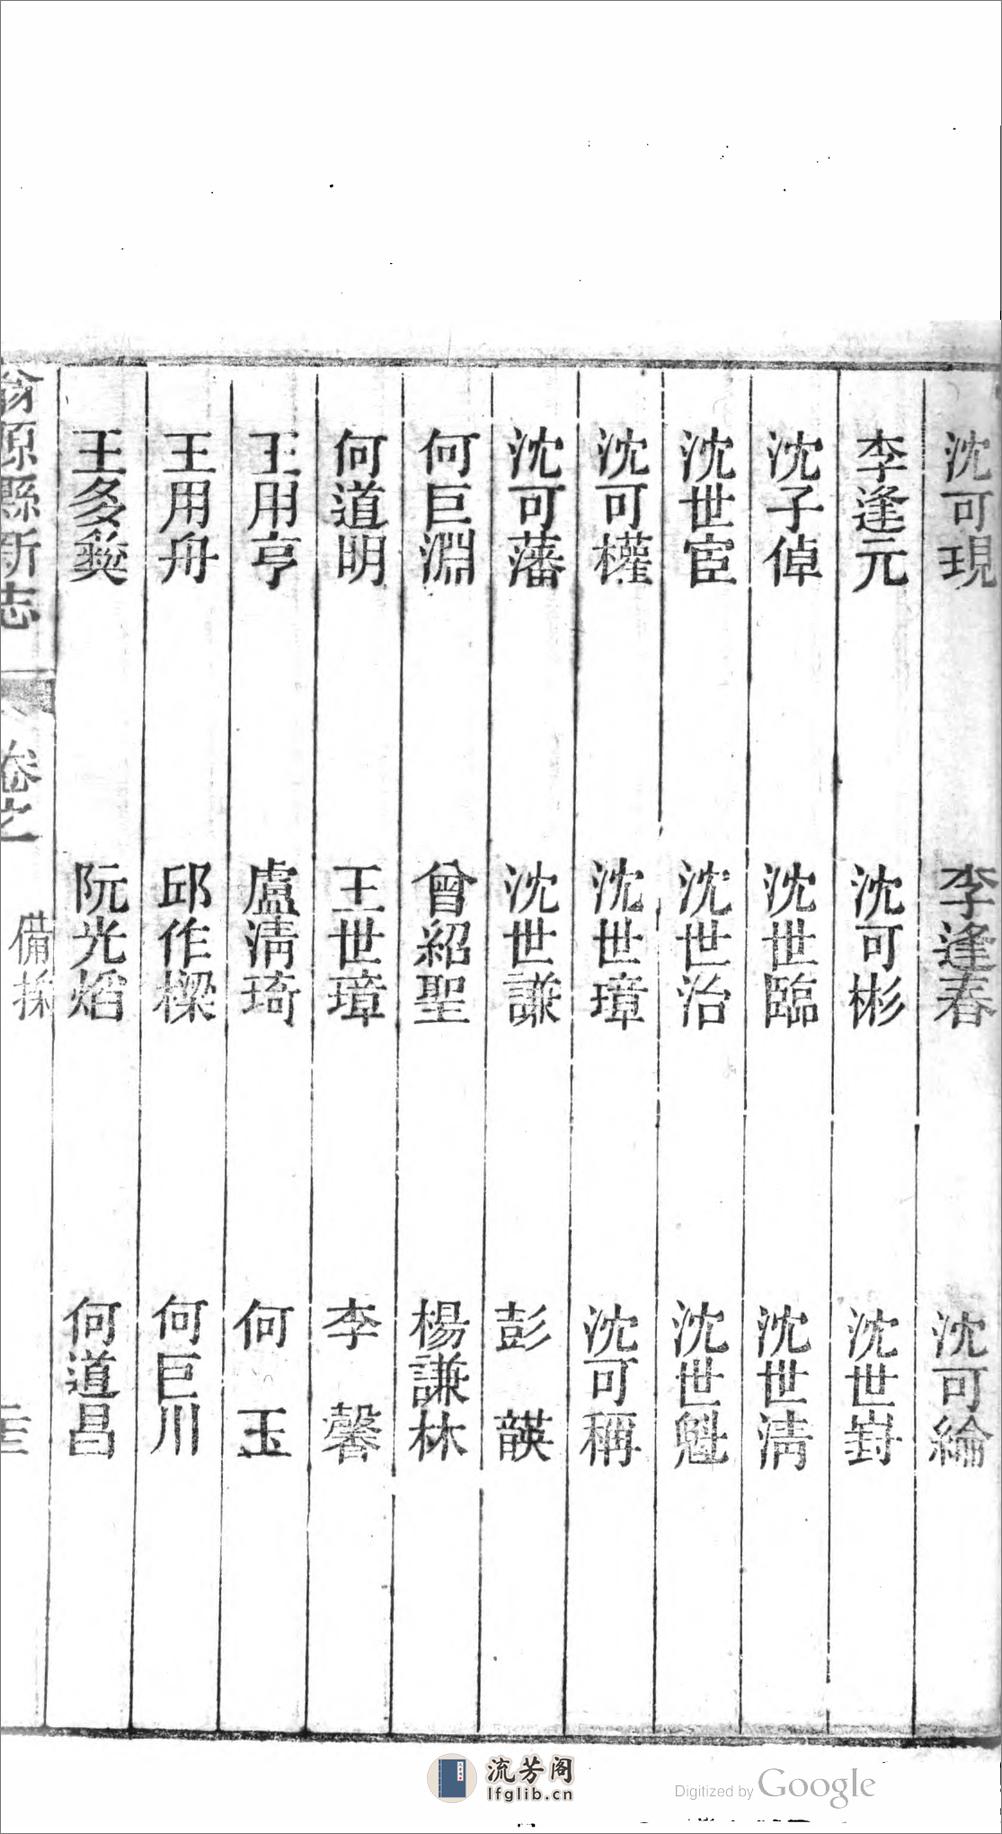 沈可現 李逢春 沈可綸
李逢元 沈可彬 沈世崶
沈子倬 沈世臨 沈世清
沈世宦 沈世治 沈世魁
沈可權 沈世璋 沈可稱
沈可藩 沈世謙 彭韺
何巨淵 曾紹聖 楊謙林
何道明 王世璋 李馨
王用亨 盧清琦 何玉
王用舟 邱作樑 何巨川
王多燊 阮光熖 何道昌
翁原縣新志 卷之 備採
流芳阁
lfglib.cn
Digitized by Google